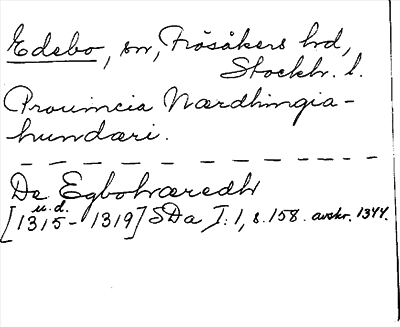 Edebo, sn, Frösåkers hd,
Stockh. l.
Prouincia Nærdhingia-
hundæri.
De Egbohæredh
u.d.
[1315-1319] SDa I:1, s.158. avskr. 1344.